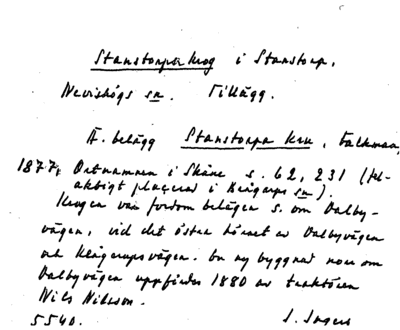 Stanstorps krog i Stanstorp,
Nevishögs sn. Tillägg.
Ä. belägg Stanstorps kro, Falkman,
1877, Ortnamnen i Skåne s. 62, 231 (fel-
aktigt placerad i Kågerups sn).
Krogen var fordom belägen s. om Dalby-
vägen, vid det östra hörnet av Dalbyvägen
och Klågerupsvägen. En ny byggnad norr om
Dalbyvägen uppfördes 1880 av traktören
Nils Nilsson.
5540. I. Ingers